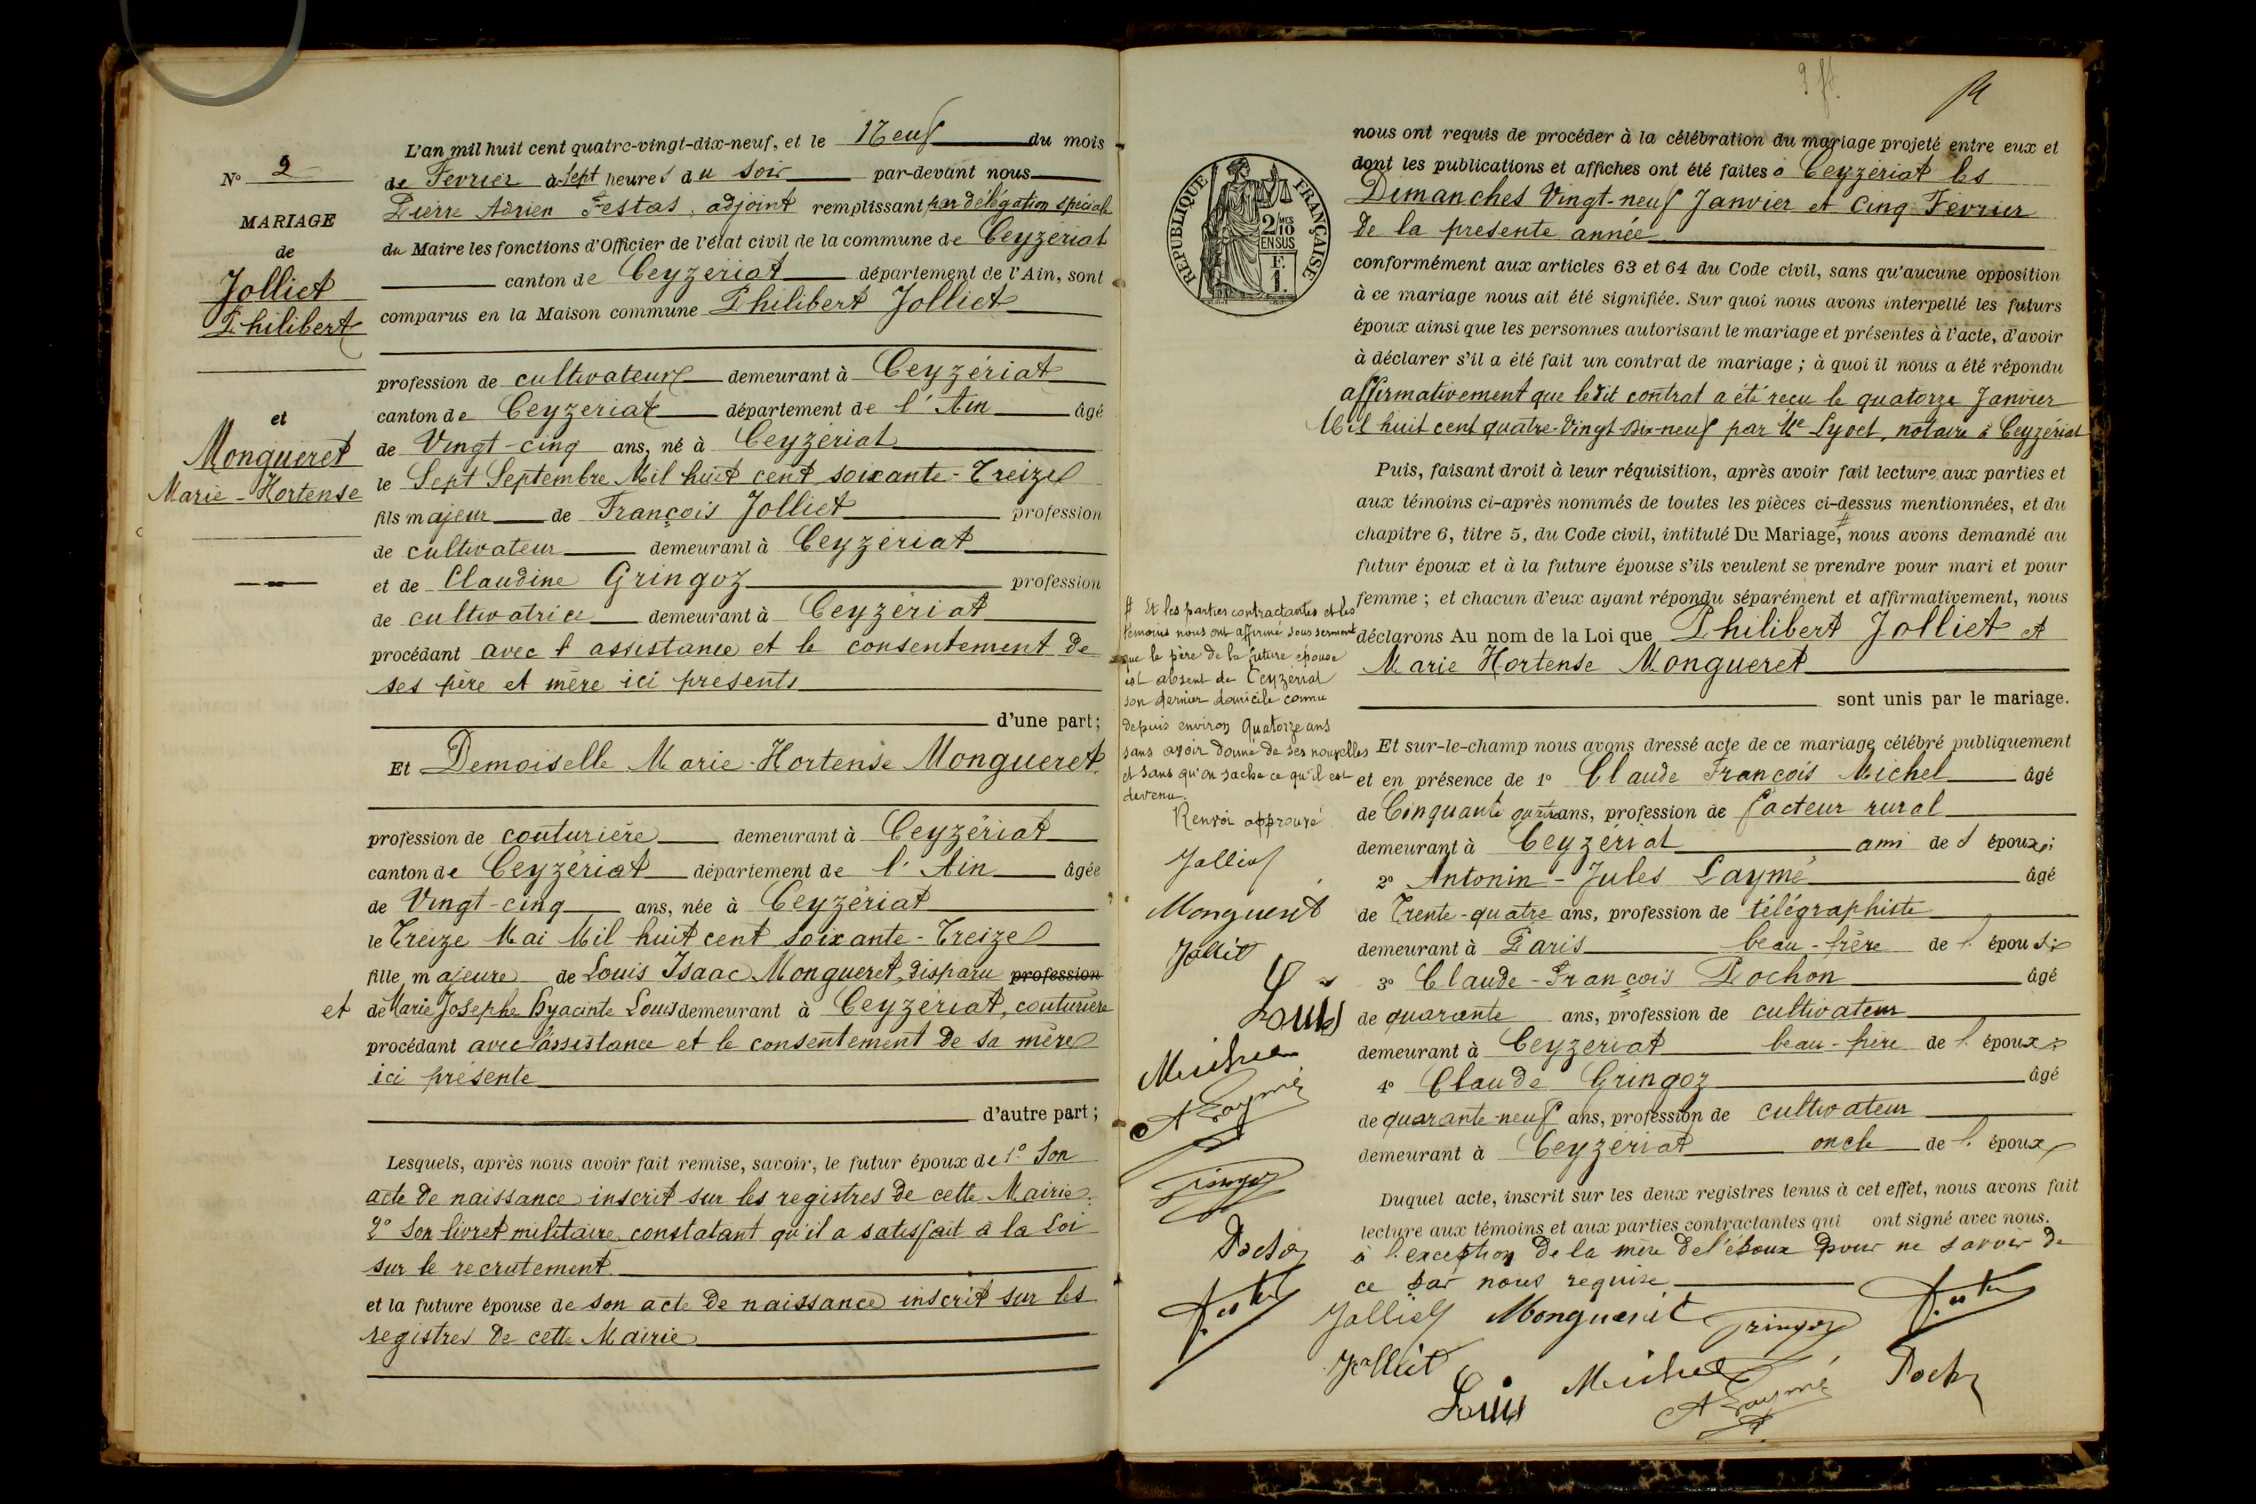 N° 2
MARIAGE
de
Jolliet
Philibert
et
Mongueret
Marie-Hortense
L'an mil huit cent quatre-vingt-dix-neuf, et le Neuf du mois
de Fevrier à Sept heures du soir par-devant nous
Pierre Adrien Festas, adjoint remplissant par délégation spéciale
du Maire les fonctions d'Officier de l'état civil de la commune de Ceyzériat
canton de Ceyzériat département de l'Ain, sont
comparus en la Maison commune Philibert Jolliet
profession de cultivateur demeurant à Ceyzériat
canton de Ceyzeriat département de l'Ain âgé
de Vingt-cinq ans, né à Ceyzériat
le Sept Septembre Mil huit cent soixante-Treize
fils majeur de François Jolliet profession
de cultivateur demeurant à Ceyzériat
et de Claudine Gringoz profession
de cultivatrice demeurant à Ceyzériat
procédant avec l'assistance et le consentement de
ses père et mère ici présents
d'une part;
Et Demoiselle Marie-Hortense Mongueret
profession de couturière demeurant à Ceyzériat
canton de Ceyzériat département de l'Ain âgée
de Vingt-cinq ans, née à Ceyzériat
le Treize Mai Mil huit cent soixante-Treize
fille majeure de Louis Isaac Mongueret, disparu profession
et de Marie Josephe Hyacinte Louis demeurant à Ceyzériat, couturière
procédant avec l'assistance et le consentement de sa mère
ici présente
d'autre part;
Lesquels, après nous avoir fait remise, savoir, le futur époux de 1° Son
acte de naissance inscrit sur les registres de cette Mairie.
2° Son livret militaire constatant qu'il a satisfait à la Loi
sur le recrutement
et la future épouse de son acte de naissance inscrit sur les
registres de cette Mairie
RÉPUBLIQUE FRANÇAISE
2/10 MES
EN SUS
F.
1.
nous ont requis de procéder à la célébration du mariage projeté entre eux et
dont les publications et affiches ont été faites à Ceyzériat les
Dimanches Vingt-neuf Janvier et Cinq Fevrier
de la presente année
conformément aux articles 63 et 64 du Code civil, sans qu'aucune opposition
à ce mariage nous ait été signifiée. Sur quoi nous avons interpellé les futurs
époux ainsi que les personnes autorisant le mariage et présentes à l'acte, d'avoir
à déclarer s'il a été fait un contrat de mariage; à quoi il nous a été répondu
affirmativement que ledit contrat a été reçu le quatorze Janvier
Mil huit cent quatre-Vingt-Dix-neuf par Me Lyvet, notaire à Ceyzériat
Puis, faisant droit à leur réquisition, après avoir fait lecture aux parties et
aux témoins ci-après nommés de toutes les pièces ci-dessus mentionnées, et du
chapitre 6, titre 5, du Code civil, intitulé Du Mariage, # nous avons demandé au
futur époux et à la future épouse s'ils veulent se prendre pour mari et pour
femme; et chacun d'eux ayant répondu séparément et affirmativement, nous
déclarons Au nom de la Loi que Philibert Jolliet et
Marie Hortense Mongueret
sont unis par le mariage.
Et sur-le-champ nous avons dressé acte de ce mariage célébré publiquement
et en présence de 1° Claude François Michel âgé
de Cinquante quatre ans, profession de facteur rural
demeurant à Ceyzériat ami de l'époux;
2° Antonin-Jules Laymé âgé
de Trente-quatre ans, profession de télégraphiste
demeurant à Paris beau-frère de l'époux;
3° Claude-François Pochon âgé
de quarante ans, profession de cultivateur
demeurant à Ceyzeriat beau-frère de l'époux;
4° Claude Gringoz âgé
de quarante-neuf ans, profession de cultivateur
demeurant à Ceyzériat oncle de l'époux
Duquel acte, inscrit sur les deux registres tenus à cet effet, nous avons fait
lecture aux témoins et aux parties contractantes qui ont signé avec nous.
à l'exception de la mère de l'époux pour ne savoir de
ce par nous requise
Jolliet Mongueret Gringoz
Jolliet
Louis Michel A Laymé Pochon
# Et les parties contractantes et les
témoins nous ont affirmé sous serment
que le père de la future épouse
est absent de Ceyzériat
son dernier domicile connu
depuis environ Quatorze ans
sans avoir donné de ses nouvelles
et sans qu'on sache ce qu'il est
devenu.
Renvoi approuvé
Jolliet
Mongueret
Jolliet
Louis
Michel
A Laymé
Gringoz
Pochon